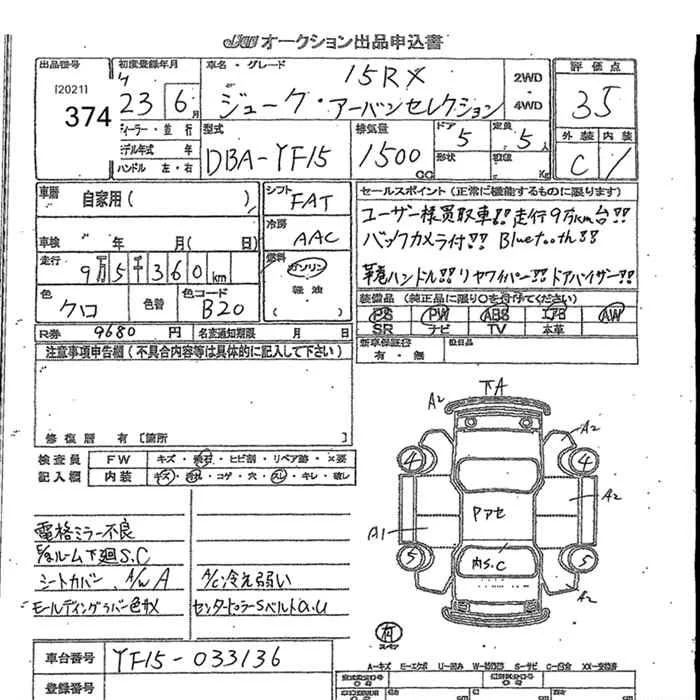 JAA オークション出品申込書
出品番号 初度登録年月 車名・グレード 評価点
[2021]
374
23 6月
15RX
ジューク・アーバンセレクション
2WD
4WD
35
ディーラー・並行 型式 排気量 ドア 定員 外装 内装
モデル年式 年
ハンドル 左・右
DBA-YF15 1500cc 5 5人 C /
形状 積載 Kg
車歴 自家用( ) シフト FAT
セールスポイント(正常に機能するものに限ります)
冷房 AAC
ユーザー様買取車!! 走行9万km台!!
バックカメラ付!! Bluetooth!!
革巻ハンドル!! リヤワイパー!! ドアバイザー!!
車検 年 月( 日)
走行 9万5千360km 燃料 ガソリン
軽油
( )
色 クロ 色替 色コード B20
装備品(純正品に限り○を付けてください)
PS PW ABS エアB AW
SR ナビ TV 本革
R券 9680円 名変通知期限 月 日
新車保証書 有・無 後日品
注意事項申告欄(不具合内容等は具体的に記入して下さい)
修復歴 有[箇所 ]
検査員 FW キズ・飛石・ヒビ割・リペア跡・×要
記入欄 内装 キズ・汚れ・コゲ・穴・スレ・キレ・破レ
電格ミラー不良
下廻S.C
シートカバー A/W A A/C冷え弱い
モールディングラバー色サメ
A A2
A2
4 4
A2
A1 Pアセ
5 5
内S.C
A2
有
スペア
車台番号 YF15-033136
A-キズ E-エクボ U-凹み W-補修跡 S-サビ C-腐食 XX-交換済
登録番号